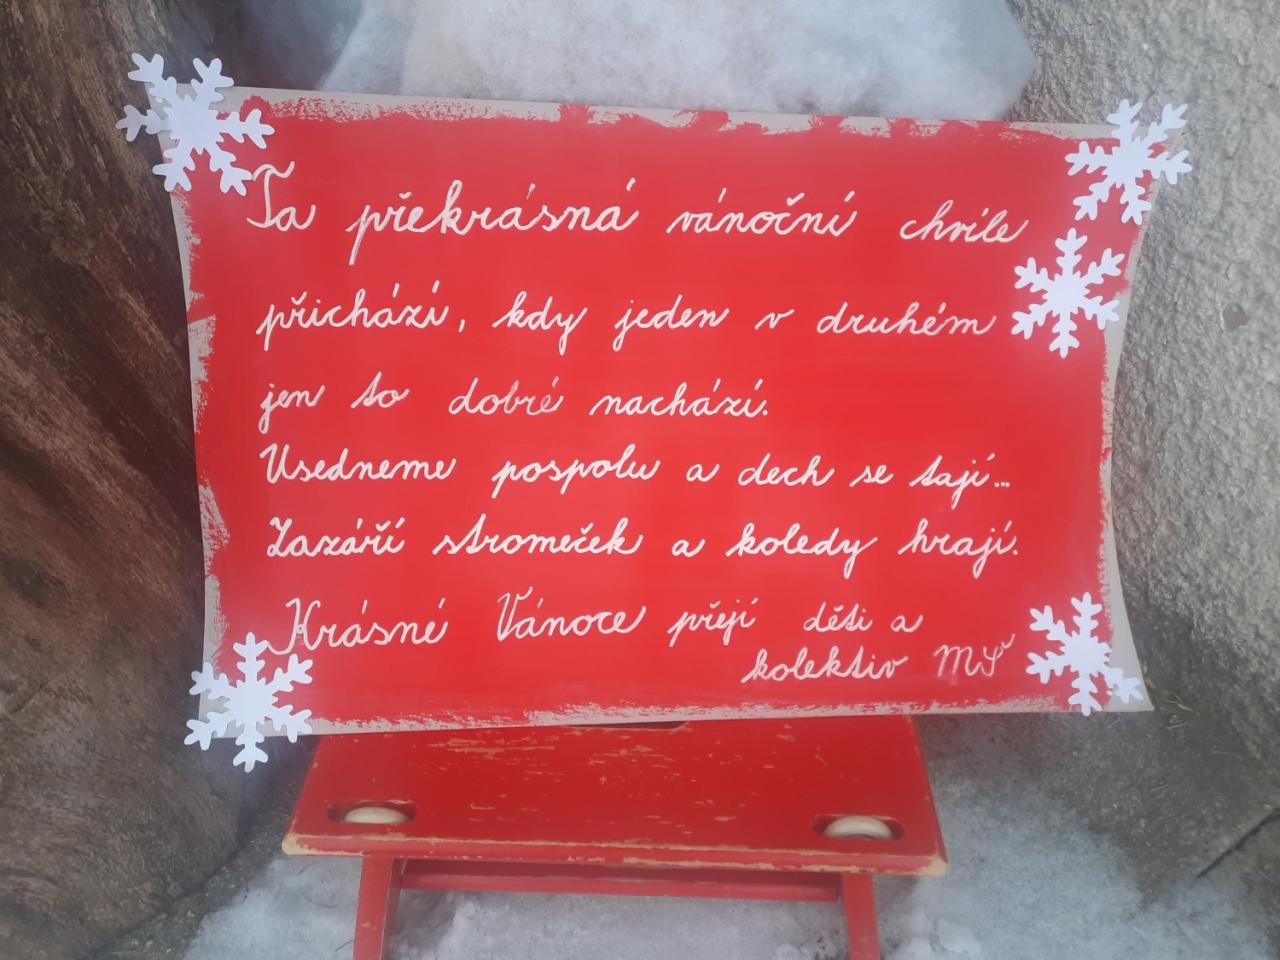 Ta překrásná vánoční chvíle
přichází, kdy jeden v druhém
jen to dobré nachází.
Usedneme pospolu a dech se tají...
Zazáří stromeček a koledy hrají.
Krásné Vánoce přejí děti a
kolektiv MŠ